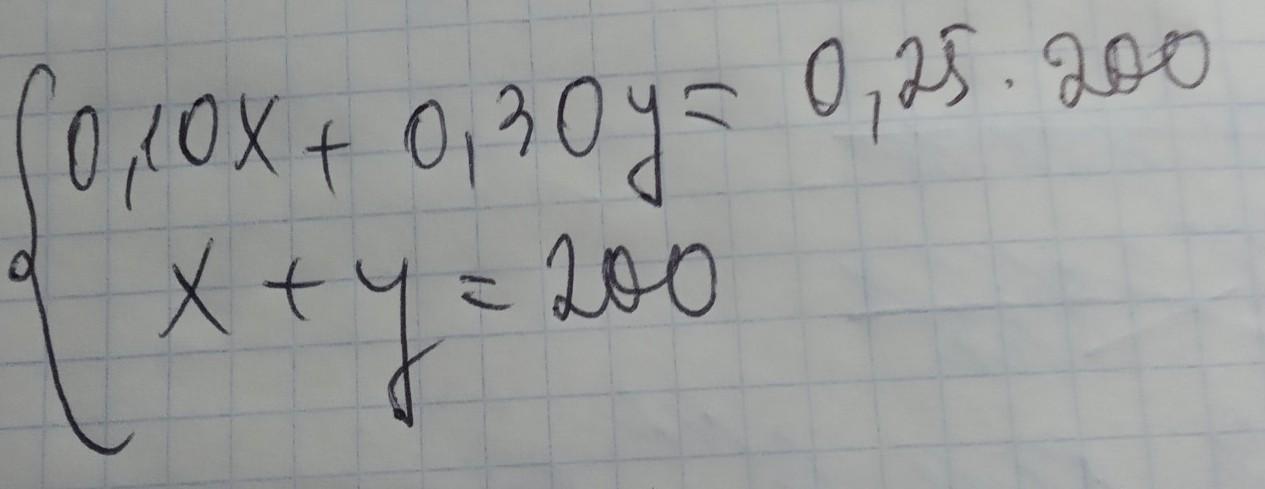 0,10x + 0,30y = 0,25 · 200
x + y = 200